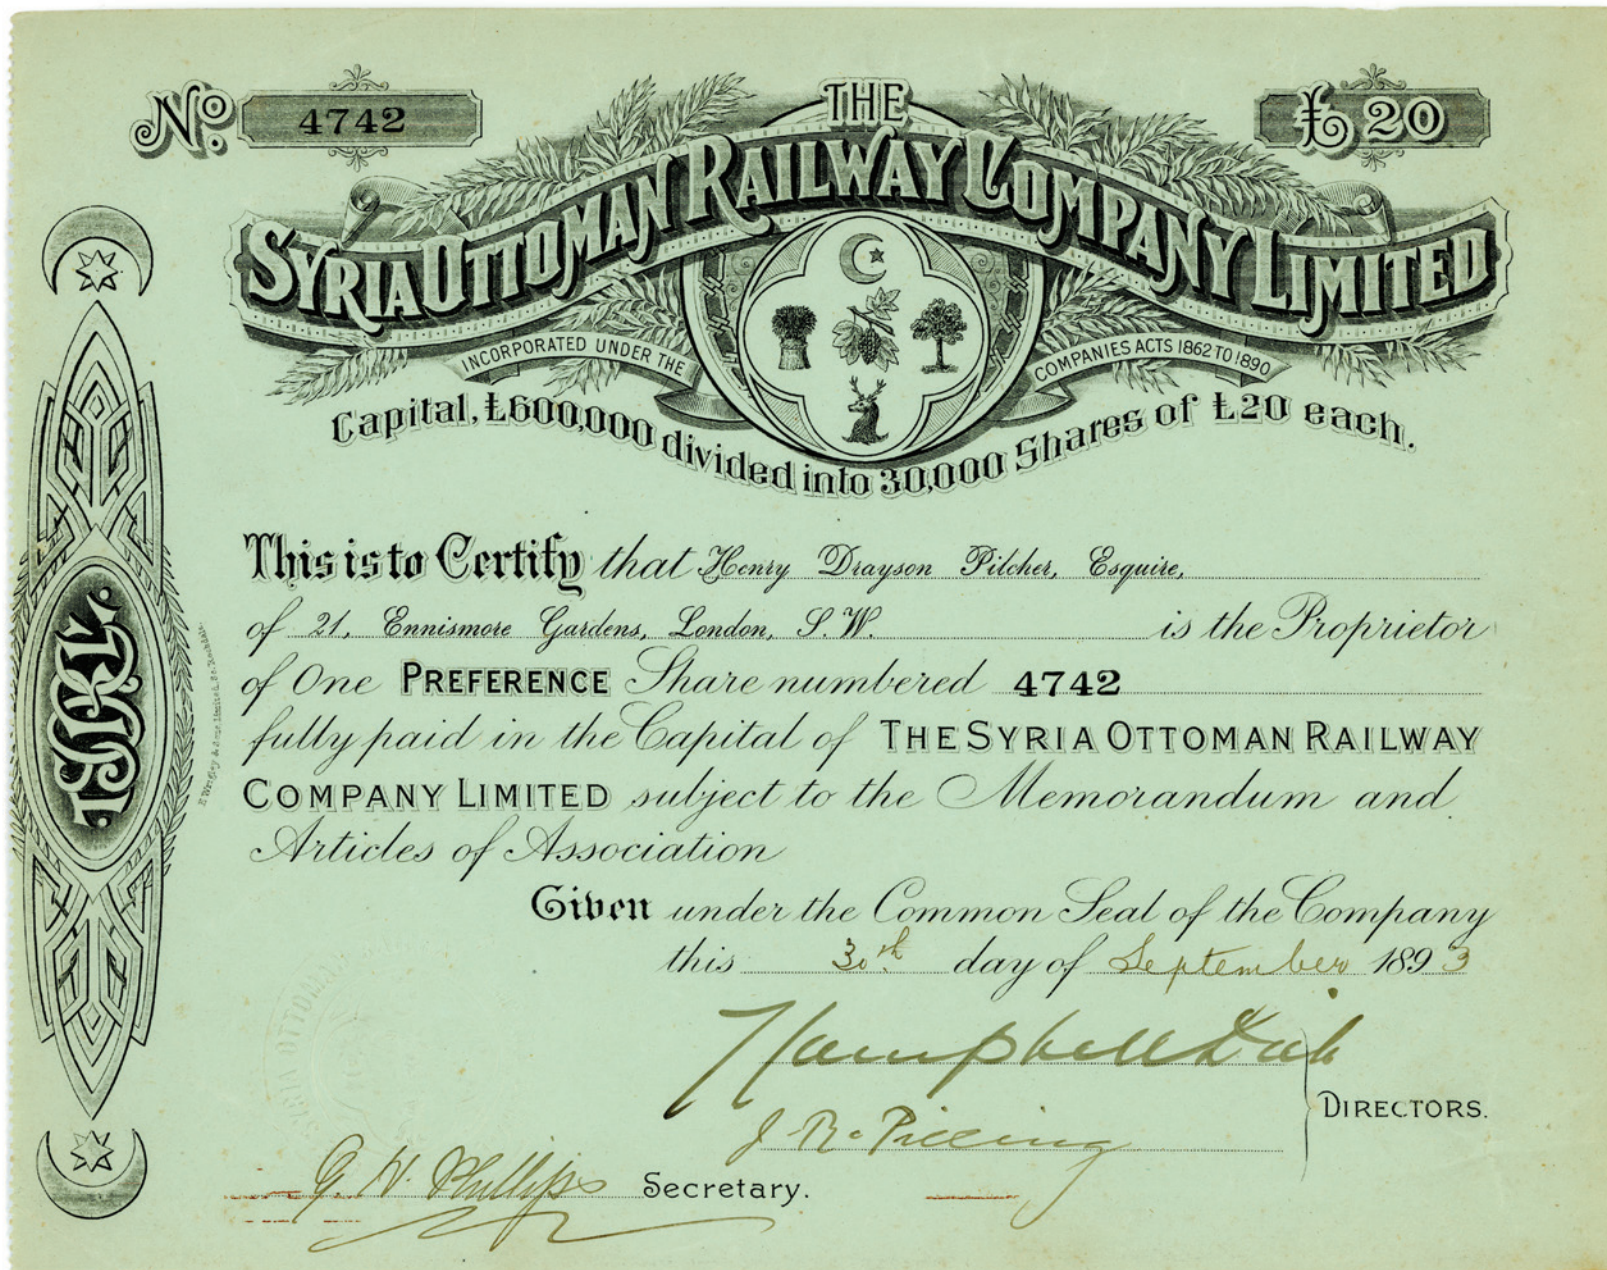 No. 4742
£20
THE
SYRIA OTTOMAN RAILWAY COMPANY LIMITED
INCORPORATED UNDER THE COMPANIES ACTS 1862 TO 1890
Capital, £600,000 divided into 30,000 Shares of £20 each.
This is to Certify that Henry Drayson Pilcher, Esquire,
of 21, Ennismore Gardens, London, S.W. is the Proprietor
of One PREFERENCE Share numbered 4742
fully paid in the Capital of THE SYRIA OTTOMAN RAILWAY
COMPANY LIMITED subject to the Memorandum and
Articles of Association
Given under the Common Seal of the Company
this 30th day of September 1893
J. R. Pilling
DIRECTORS.
G. H. Phillips Secretary.